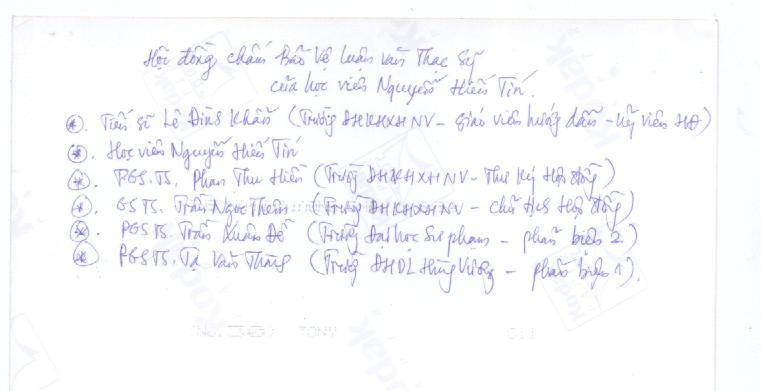 Hội đồng chấm Bảo Vệ luận văn Thạc Sỹ
của học viên Nguyễn Hiến Tín.
*. Tiến sĩ Lê Đình Khẩn (Trường ĐHKHXHNV - giáo viên hướng dẫn - uỷ viên HĐ)
*. Học viên Nguyễn Hiến Tín
*. PGS.TS. Phan Thu Hiền (Trường ĐHKHXHNV - Thư Ký Hội đồng)
*. GSTS. Trần Ngọc Thêm (Trường ĐHKHXHNV - chủ tịch Hội đồng)
*. PGSTS. Trần Xuân Đề (Trường Đại học Sư phạm - phản biện 2)
*. PGSTS. Tạ Văn Thông (Trường ĐHDL Hùng Vương - phản biện 1).
Kodak